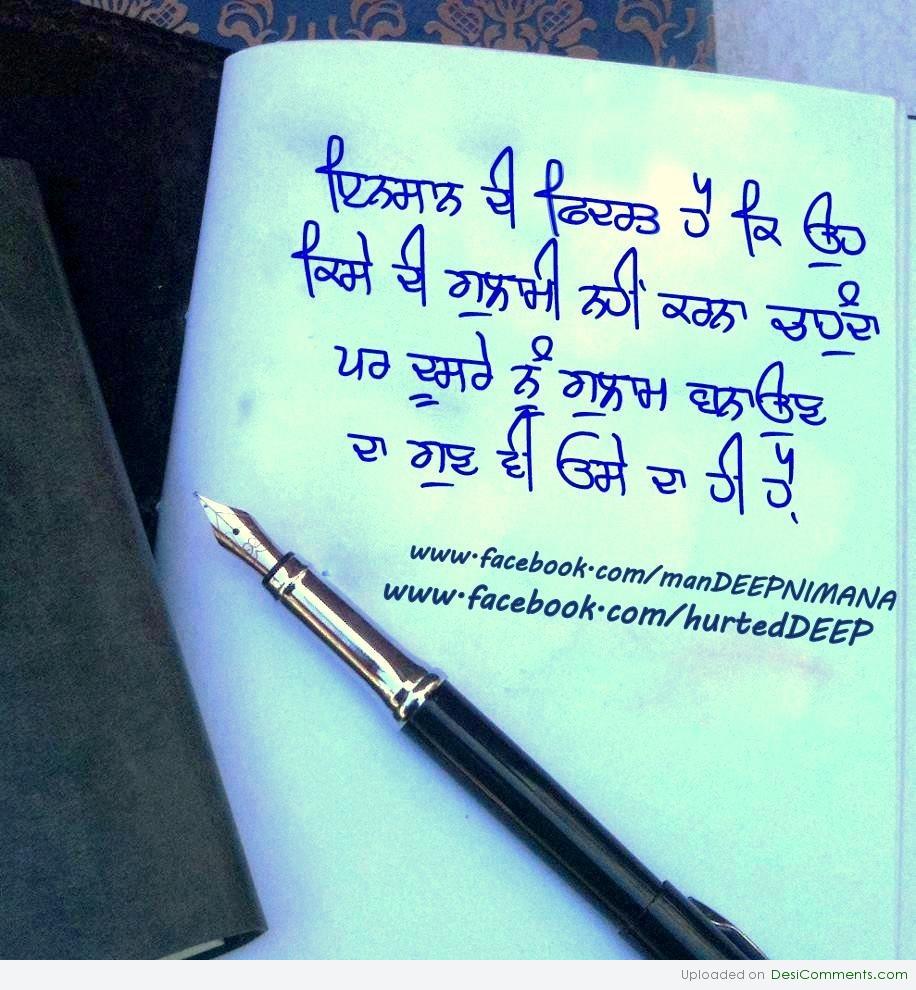 ਇਨਸਾਨ ਦੀ ਫਿਦਰਤ ਹੈ ਕਿ ਉਹ
ਕਿਸੇ ਦੀ ਗੁਲਾਮੀ ਨਹੀਂ ਕਰਨਾ ਚਾਹੁੰਦਾ
ਪਰ ਦੂਸਰੇ ਨੂੰ ਗੁਲਾਮ ਬਨਾਉਣ
ਦਾ ਗੁਣ ਵੀ ਓਸੇ ਦਾ ਹੀ ਹੈ.
www.facebook.com/manDEEPNIMANA
www.facebook.com/hurtedDEEP
Uploaded on DesiComments.com